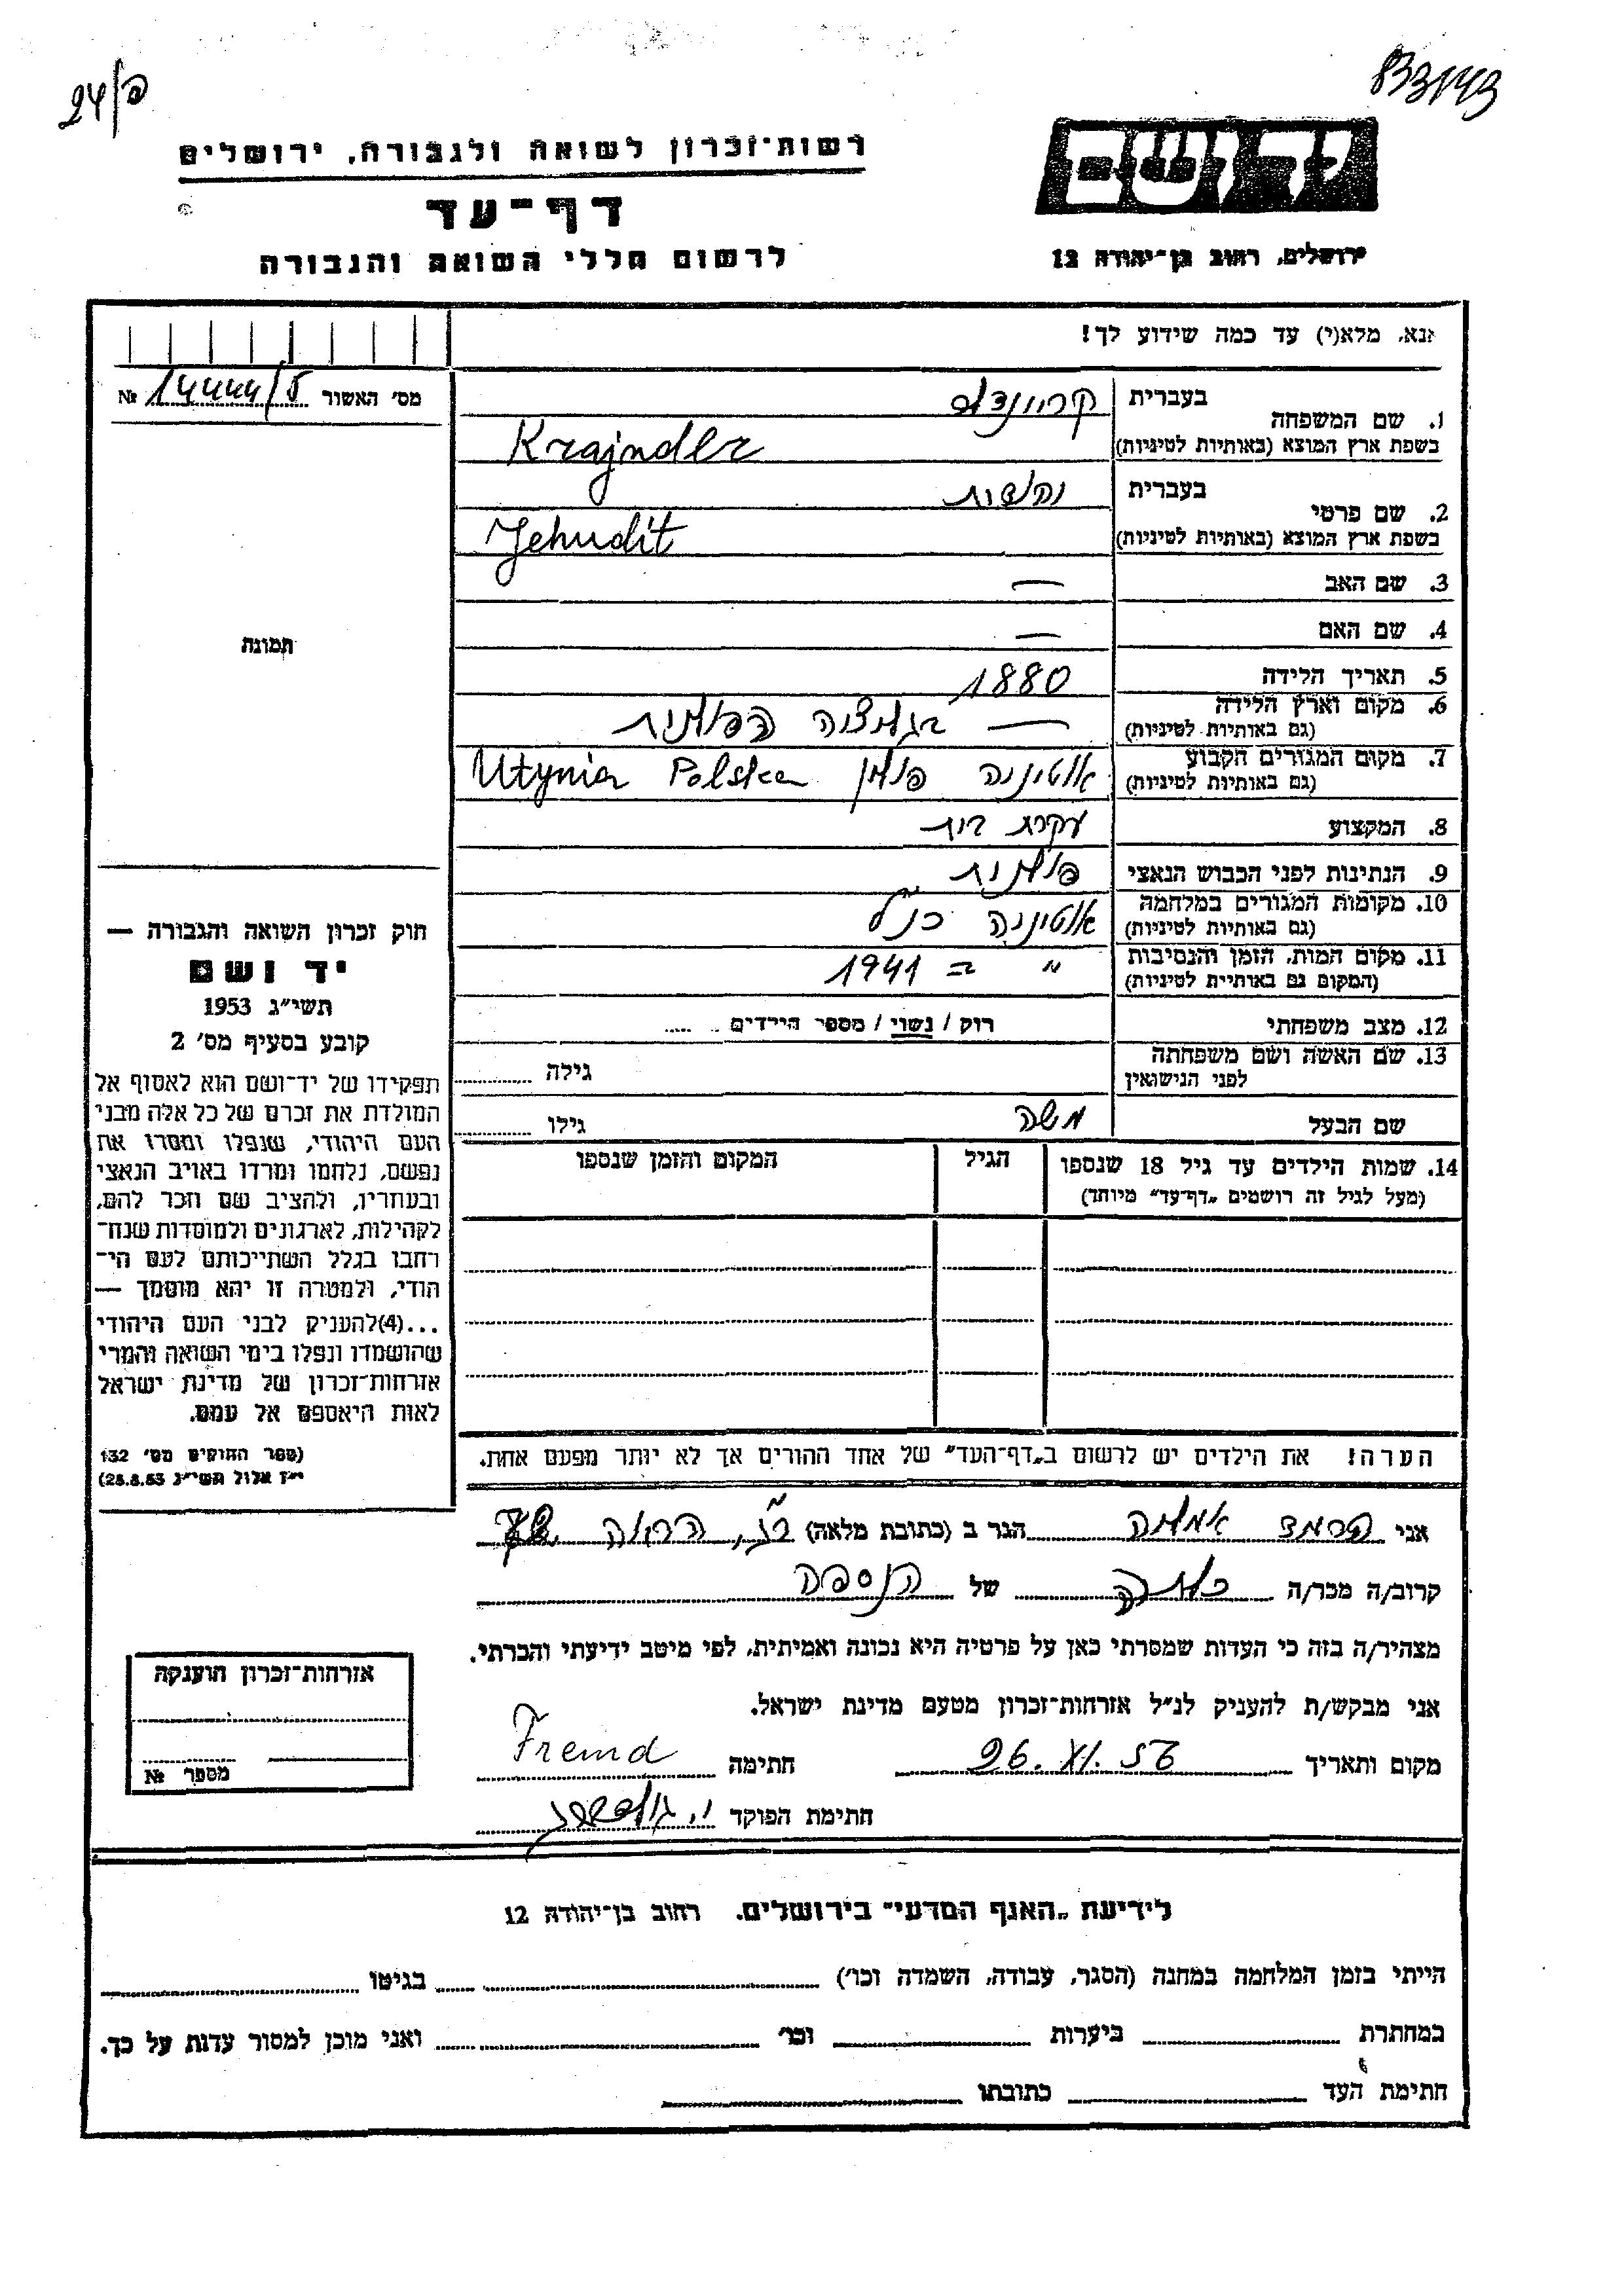 24/פ
833143
רשות־זכרון לשואה ולגבורה, ירושלים
יד ושם
דף־עד
לרשום חללי השואה והגבורה
ירושלים, רחוב בן־יהודה 12
אנא, מלא(י) עד כמה שידוע לך!
מס' האשור 14444/5 №
1. שם המשפחה
בעברית
בשפת ארץ המוצא (באותיות לטיניות)
Krajndler
2. שם פרטי
בעברית יהודית
בשפת ארץ המוצא (באותיות לטיניות)
Jehudit
3. שם האב —
4. שם האם —
5. תאריך הלידה 1880
6. מקום וארץ הלידה
(גם באותיות לטיניות)
— בגליציה הפולנית
7. מקום המגורים הקבוע
(גם באותיות לטיניות)
אוטיניה פולין Utynia Polska
8. המקצוע עקרת בית
9. הנתינות לפני הכבוש הנאצי פולנית
10. מקומות המגורים במלחמה
(גם באותיות לטיניות)
אוטיניה כנ"ל
11. מקום המות, הזמן והנסיבות
(המקום גם באותיית לטיניות)
" ב 1941
12. מצב משפחתי רוק / נשוי / מספר הילדים
13. שם האשה ושם משפחתה
לפני הנישואין
גילה
שם הבעל משה גילו
14. שמות הילדים עד גיל 18 שנספו
(מעל לגיל זה רושמים „דף־עד" מיוחד)
הגיל
המקום והזמן שנספו
תמונה
חוק זכרון השואה והגבורה —
יד ושם
תשי"ג 1953
קובע בסעיף מס' 2
תפקידו של יד־ושם הוא לאסוף אל
המולדת את זכרם של כל אלה מבני
העם היהודי, שנפלו ומסרו את
נפשם, נלחמו ומרדו באויב הנאצי
ובעוזריו, ולהציב שם וזכר להם,
לקהילות, לארגונים ולמוסדות שנח־
רחבו בגלל השתייכותם לעם הי־
הודי, ולמטרה זו יהא מוסמך —
...(4)להעניק לבני העם היהודי
שהושמדו ונפלו בימי השואה והמרי
אזרחות־זכרון של מדינת ישראל
לאות היאספם אל עמם.
(ספר החוקים מס' 132
י"ז אלול תשי"ג 28.8.53)
הערה! את הילדים יש לרשום ב„דף־העד" של אחד ההורים אך לא יותר מפעם אחת.
אני פרמד הגר ב (כתובת מלאה)
קרוב/ה מכר/ה כלתה של הנספה
מצהיר/ה בזה כי העדות שמסרתי כאן על פרטיה היא נכונה ואמיתית, לפי מיטב ידיעתי והכרתי.
אני מבקש/ת להעניק לנ"ל אזרחות־זכרון מטעם מדינת ישראל.
מקום ותאריך 26. XI. 56 חתימה Fremd
חתימת הפוקד
אזרחות־זכרון הוענקה
מספר №
לידיעת „האגף המדעי" בירושלים. רחוב בן־יהודה 12
הייתי בזמן המלחמה במחנה (הסגר, עבודה, השמדה וכו') בגיטו
במחתרת ביערות וכו' ואני מוכן למסור עדות על כך.
חתימת העד כתובתו